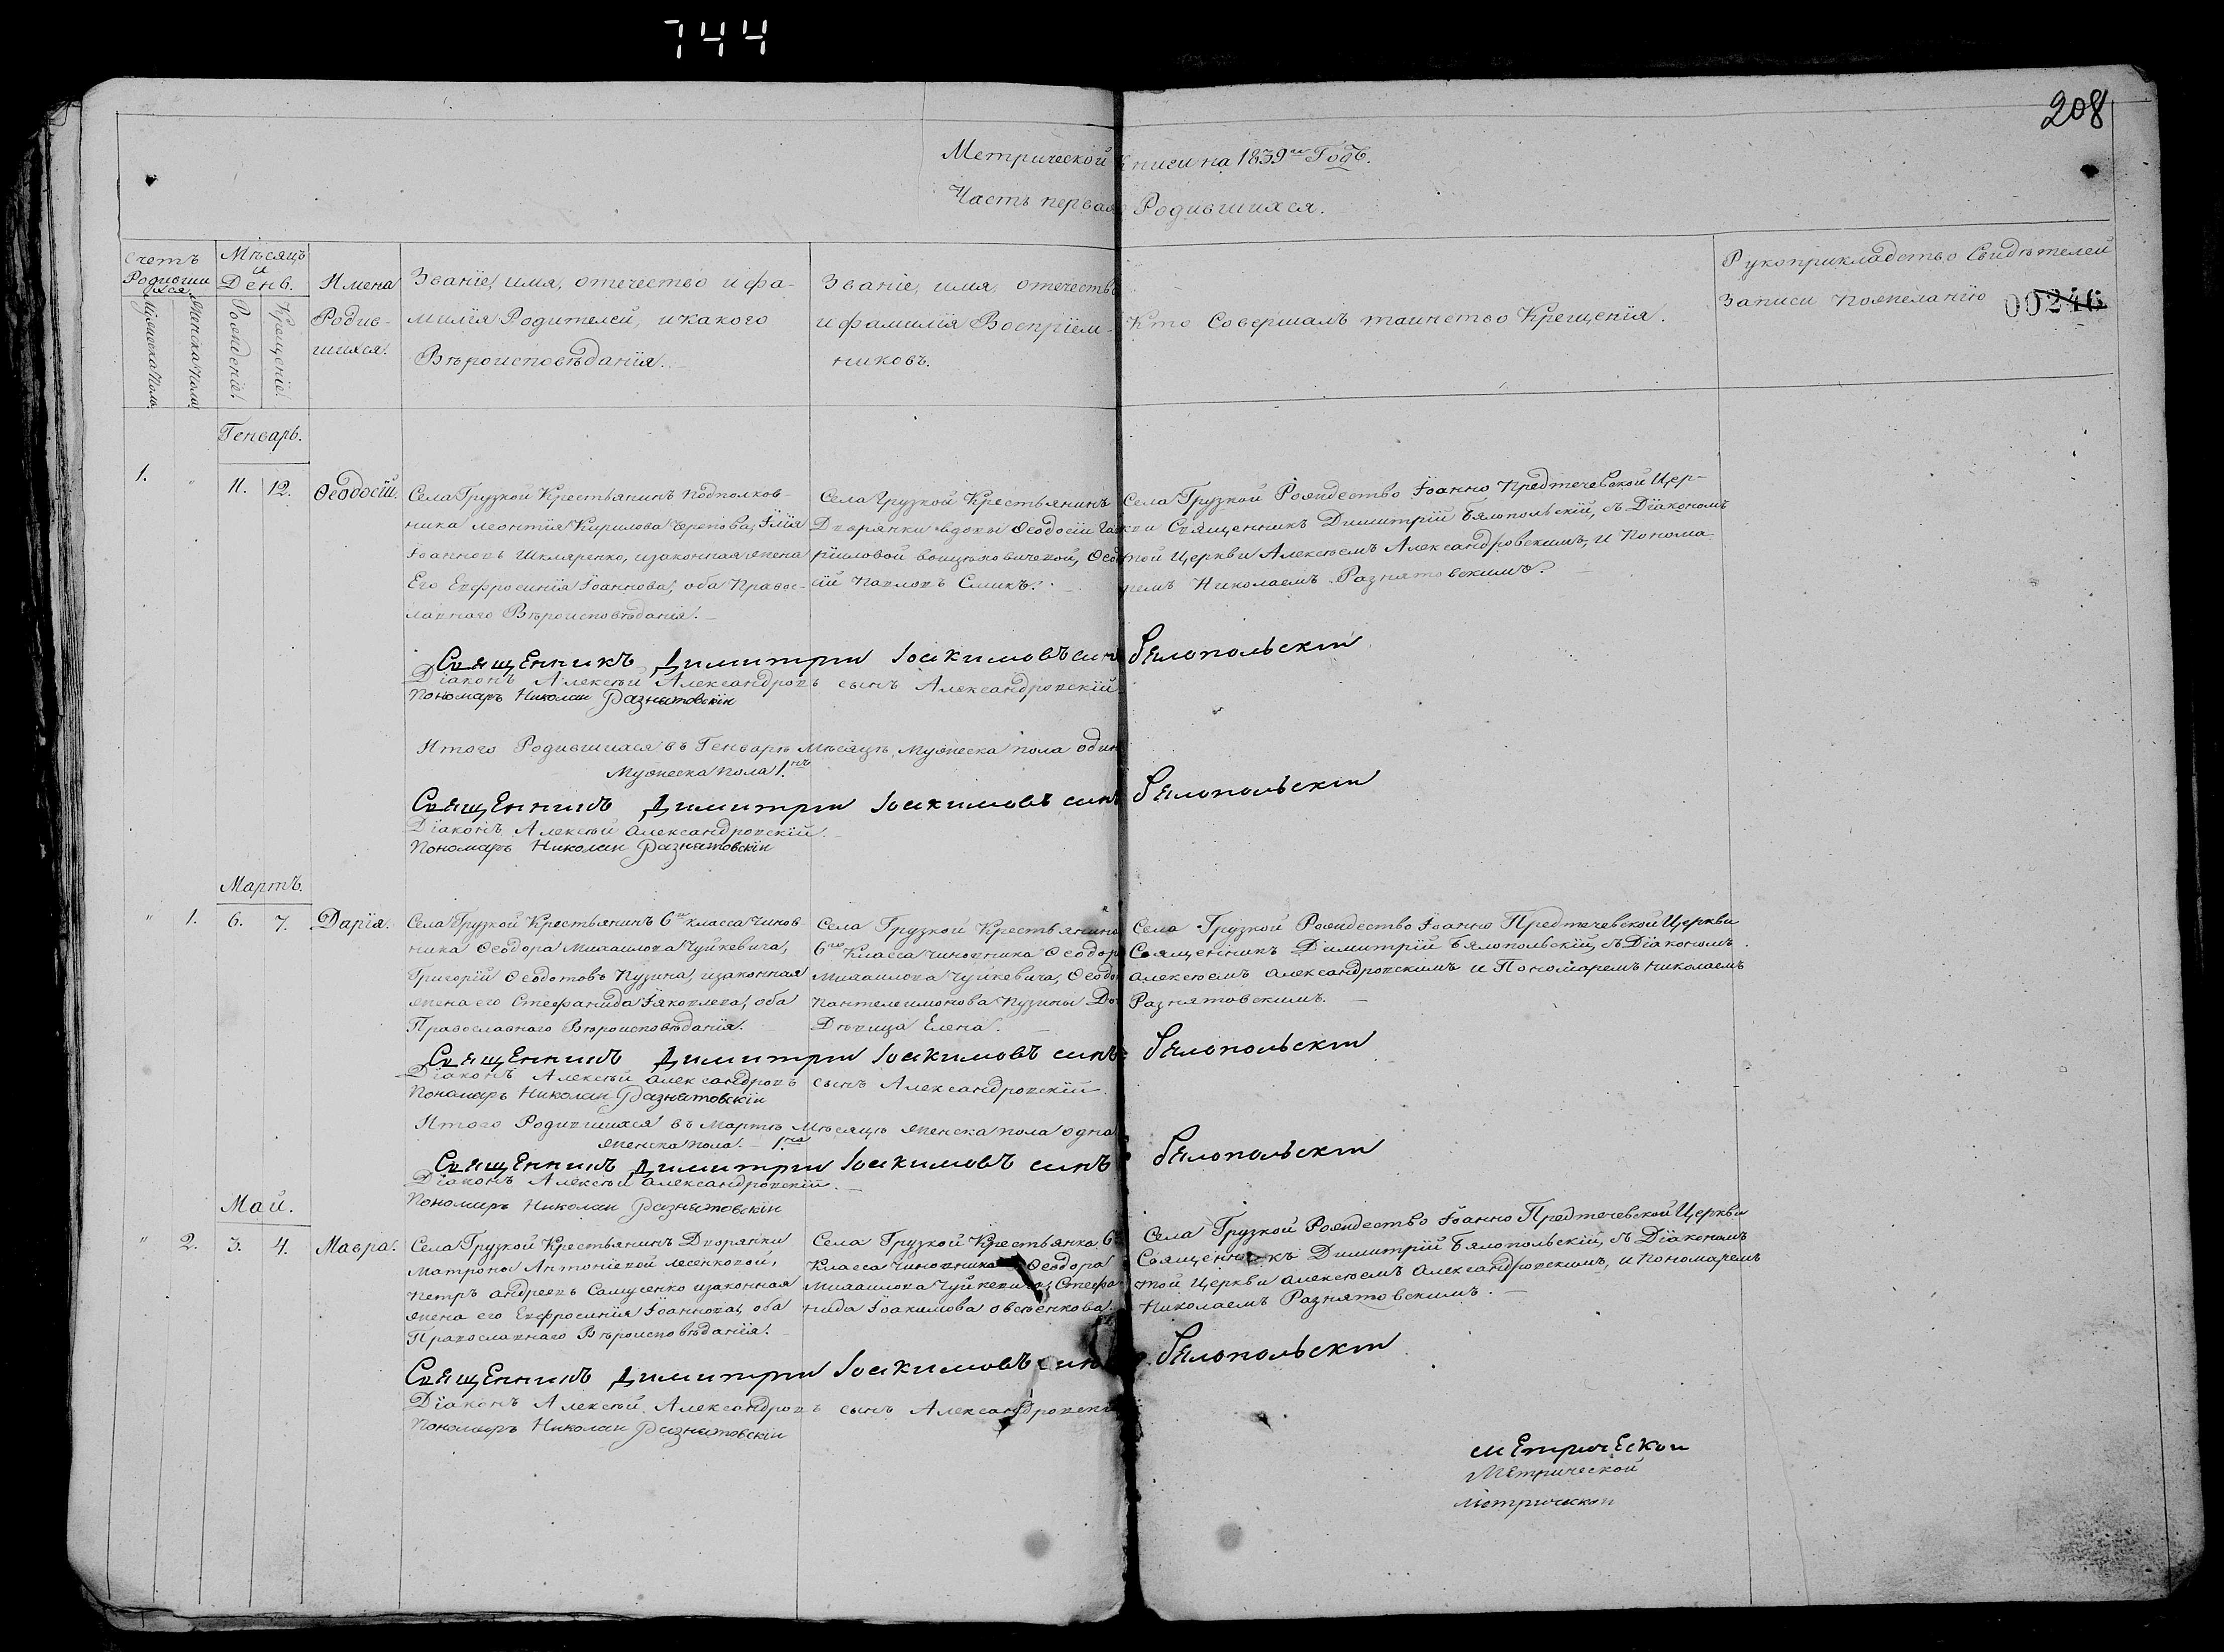 744
208
Метрической Книги на 1839й Годъ.
Часть первая Родившихся.
Счетъ Родившихся
Мужеска Пола
Женска Пола
Мѣсяцъ и День.
Рожденіе.
Крещеніе.
Имена Родив-
шихся.
Званіе, имя, отечество и фа-
милія Родителей, и какого
Вѣроисповѣданія.
Званіе, имя, отечество
и фамилія Воспріем-
никовъ.
Кто Совершалъ таинство Крещенія.
Рукоприкладство Свидѣтелей
Записи по желанію
00246
Генварь.
1. " 11. 12. Ѳеодосій.
Села Грузкой Крестьянинъ Подполков-
ника Леонтія Кирилова Черепова, Илія
Іоанновъ Шкляренко, и законная жена
Его Евфросинія Іоаннова, оба Правос-
лавнаго Вѣроисповѣданія.
Села Грузкой Крестьянинъ
Дворянки вдовы Ѳеодосіи
риловой Воицеховичевой,
сій Павловъ Сликъ.
Села Грузкой Рождество Іоанно Предтечевской Цер-
кви Священникъ Димитрій Бялопольскій, съ Діакономъ
той Церкви Алексѣемъ Александровскимъ, и Понома-
ремъ Николаемъ Разнятовскимъ.
Священникъ Димитрий Іоакимовъ синъ Бялопольский
Діаконъ Алексѣй Александровъ сынъ Александровскій
Пономарь Николаи Разнятовскіи
Итого Родившихся въ Генварѣ Мѣсяцѣ Мужеска пола одинъ
Мужеска пола 1.нъ
Священникъ Димитрий Іоакимовъ синъ Бялопольский
Діаконъ Алексѣй Александровскій.
Пономарь Николаи Разнятовскіи
Мартъ.
" 1. 6. 7. Дарія.
Села Грузкой Крестьянинъ 6го класса Чинов-
ника Ѳеодора Михаилова Чуйкевича,
Григорій Ѳеодотовъ Пузина, и законная
жена его Стефанида Іаковлева, оба
Православнаго Вѣроисповѣданія.
Села Грузкой Крестьянина
6го Класса Чиновника Ѳеодора
Михаилова Чуйкевича,
Пантелеимонова Пузины
Дѣвица Елена.
Села Грузкой Рождество Іоанно Предтечевской Церкви
Священникъ Димитрій Бялопольскій, съ Діакономъ
Алексѣемъ Александровскимъ и Пономаремъ Николаемъ
Разнятовскимъ.
Священникъ Димитрий Іоакимовъ синъ Бялопольский
Діаконъ Алексѣй Александровъ сынъ Александровскій
Пономарь Николаи Разнятовскіи
Итого Родившихся въ Мартѣ Мѣсяцѣ женска пола одна
женска пола. 1.на
Священникъ Димитрий Іоакимовъ синъ Бялопольский
Діаконъ Алексѣй Александровскій.
Пономарь Николаи Разнятовскіи
Май.
" 2. 3. 4. Мавра.
Села Грузкой Крестьянинъ Дворянки
Матроны Антоніевой Лесенковой,
Петръ Андреевъ Самусенко и законная
жена его Евфросинія Іоаннова, оба
Православнаго Вѣроисповѣданія.
Села Грузкой Крестьянка 6го
Класса Чиновника Ѳеодора
Михаилова Чуйкевича, Стефа-
нида Іоакимова Овсѣенкова.
Села Грузкой Рождество Іоанно Предтечевской Церкви
Священникъ Димитрій Бялопольскій, съ Діакономъ
той Церкви Алексѣемъ Александровскимъ, и Пономаремъ
Николаемъ Разнятовскимъ.
Священникъ Димитрий Іоакимовъ синъ Бялопольский
Діаконъ Алексѣй Александровъ сынъ Александровскій
Пономарь Николаи Разнятовскіи
Метрической
Метрической
Метрическои